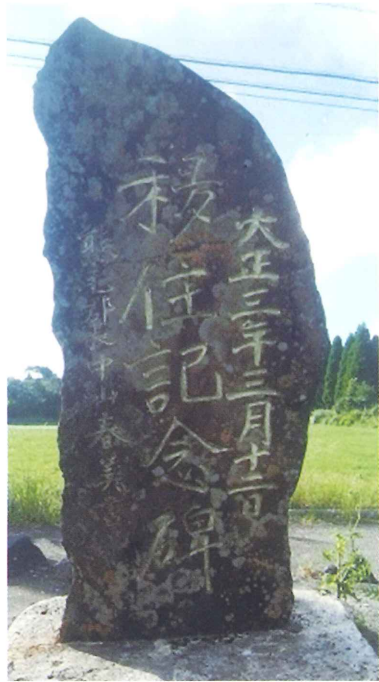 大正三年三月十二日
移住記念碑
熊毛郡長中山春美書